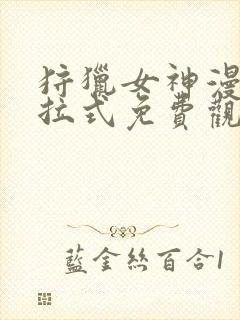 狩獵女神漫
拉式免費觀
藍金絲百合1